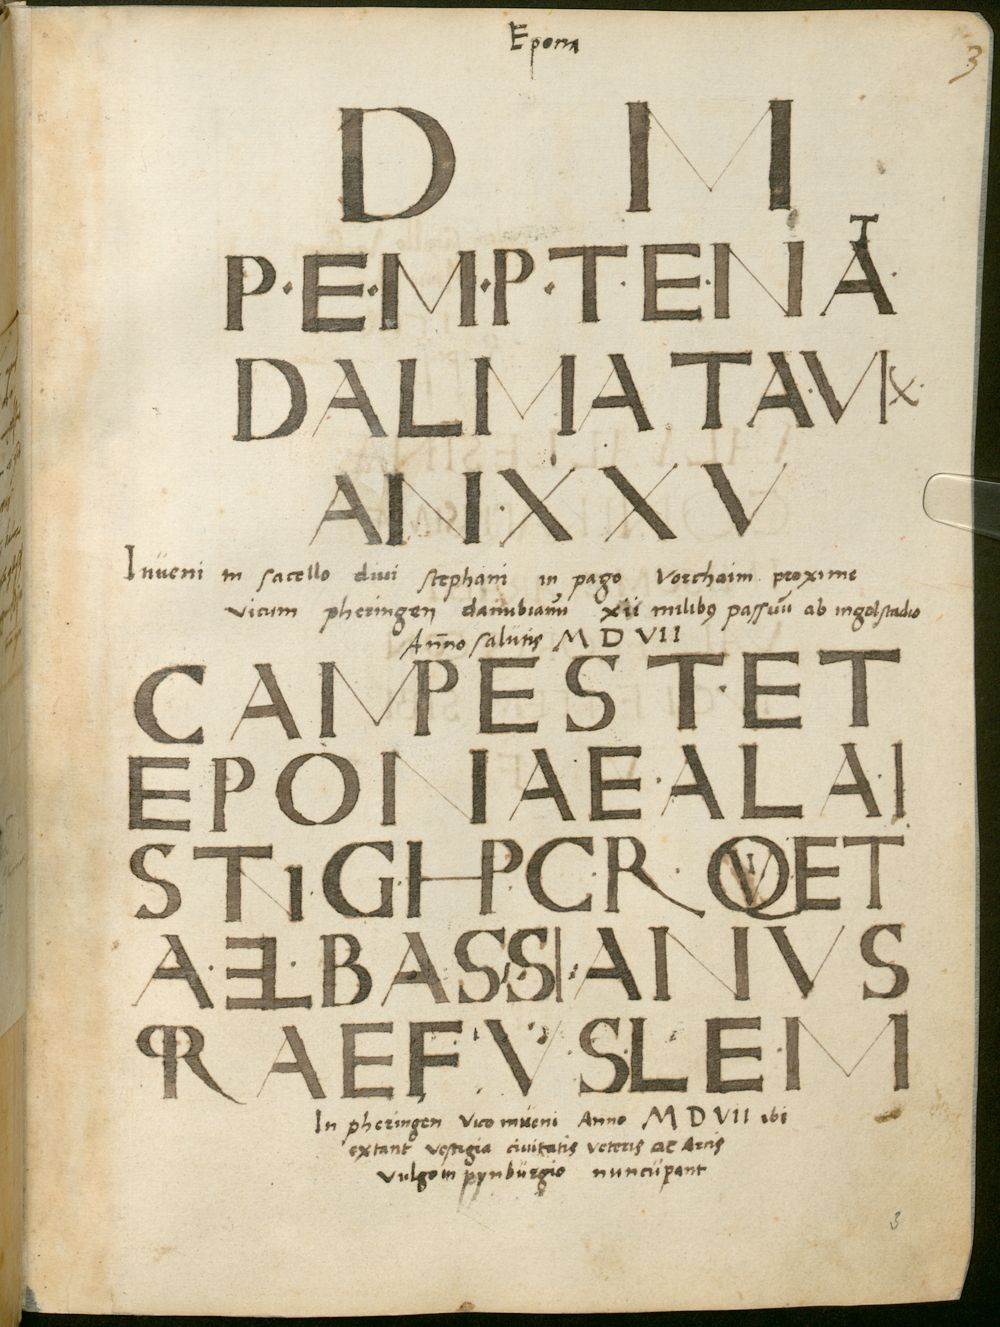 Epona
3
D M
P·E·M·P·T·E·N·A
T
DALMATAVIX
ANXXV
Inueni in sacello diui stephani in pago Vorchaim proxime
vicum pheringen danubianũ xii milibꝰ passuũ ab ingolstadio
Anno salutis M D VII
CAMPEST·ET
EPONAE·ALA·I
STIGHP·C·R QVIET
A·EL·BASSIANVS
PRAEFVSLEM
In pheringen vico inueni Anno M D VII ibi
extant vestigia ciuitatis veteris ac Arcis
vulgo in pynbürgio nuncupant
3